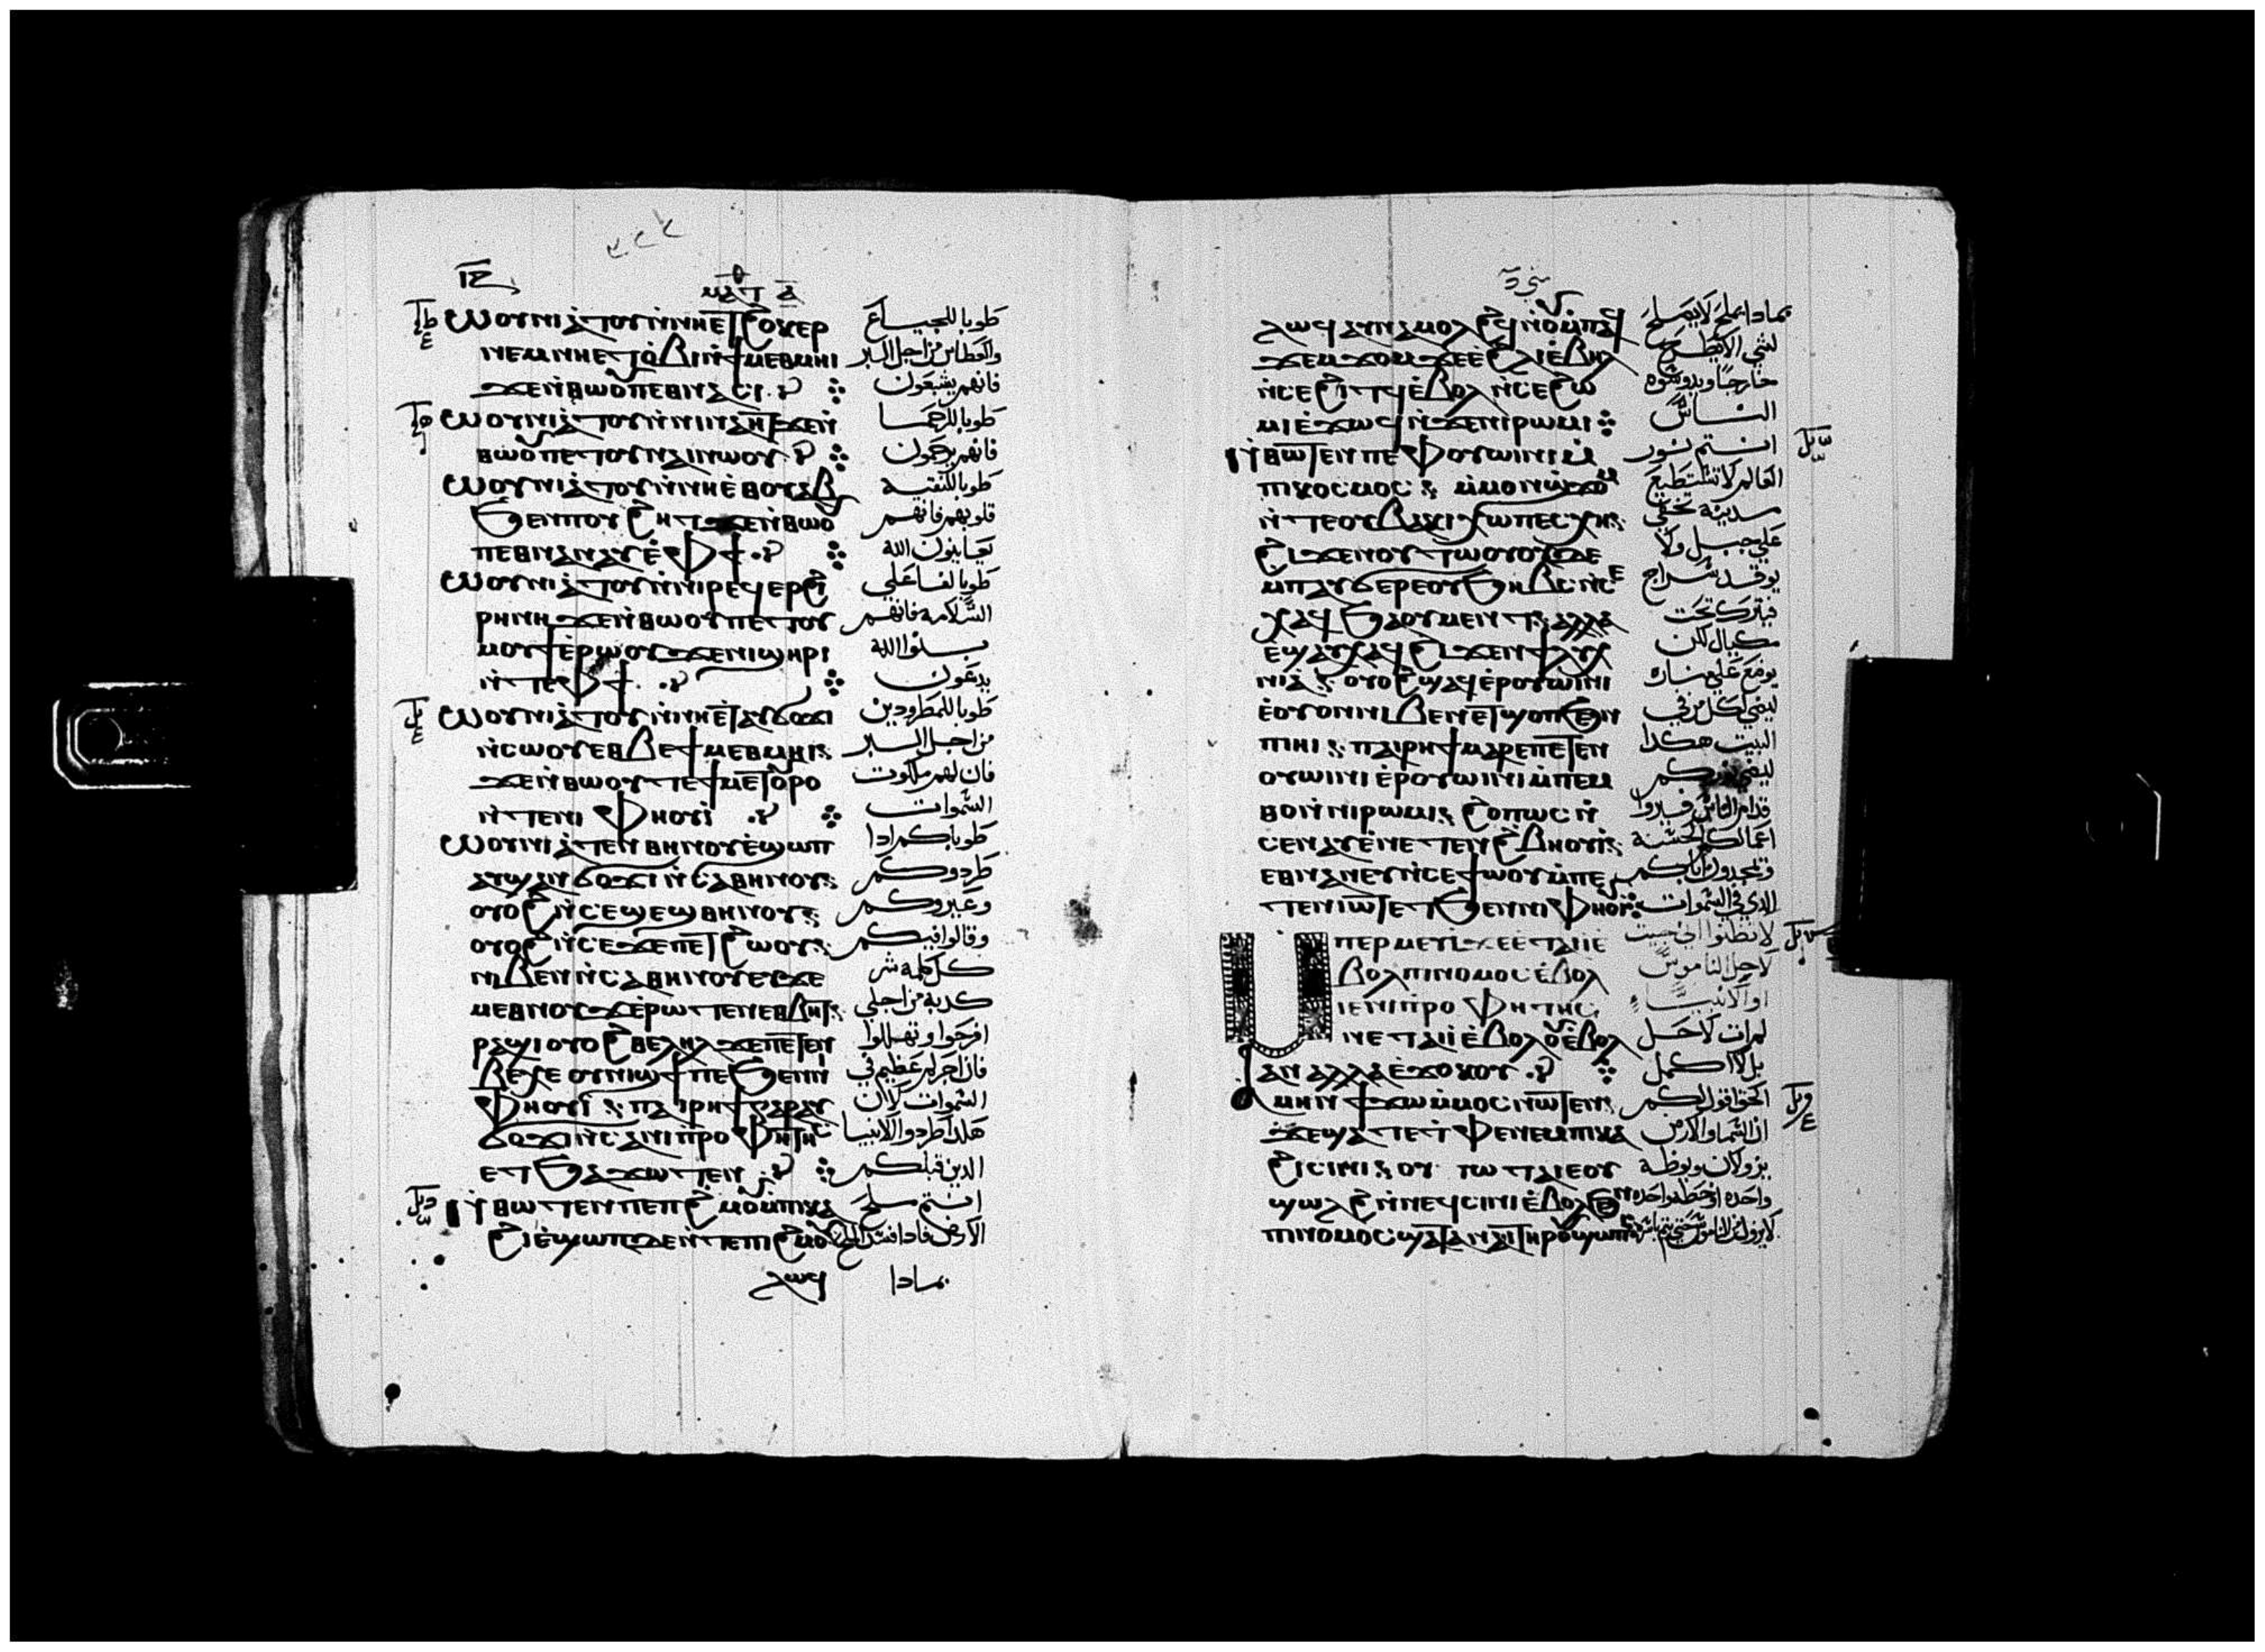 ⲙⲁⲧ ⲁ̅
ⲱⲟⲩⲛⲓⲁⲧⲟⲩⲛ̀ⲛⲏⲉⲧϩⲟⲕⲉⲣ طوبا للجياع
ⲛⲉⲙⲛⲏⲉⲧⲟ̀ⲃⲓⲛ̀ϯⲙⲉⲑⲙⲏⲓ والعطاش من اجل البر
ϫⲉⲛ̀ⲑⲱⲟⲩⲡⲉⲑⲛⲁⲥⲓ فانهم يشبعون
ⲱⲟⲩⲛⲓⲁⲧⲟⲩⲛ̀ⲛⲓⲛⲁⲏⲧϫⲉⲛ̀ طوبا للرحما
ⲑⲱⲟⲩⲡⲉⲧⲟⲩⲛⲁⲛⲁⲓⲛⲱⲟⲩ فانهم يرحمون
ⲱⲟⲩⲛⲓⲁⲧⲟⲩⲛ̀ⲛⲏⲉ̀ⲑⲟⲩⲁⲃ طوبا للنقيه
ϧⲉⲛⲡⲟⲩϩⲏⲧϫⲉⲛ̀ⲑⲱⲟⲩ قلوبهم فانهم
ⲡⲉⲑⲛⲁⲛⲁⲩⲉ̀ⲫϯ يعاينون الله
ⲱⲟⲩⲛⲓⲁⲧⲟⲩⲛ̀ⲛⲓⲣⲉϥⲉⲣϩⲓ طوبا لفاعلي
ⲣⲏⲛⲏϫⲉⲛ̀ⲑⲱⲟⲩⲡⲉⲧⲟⲩ السلامه فانهم
ⲙⲟⲩϯⲉ̀ⲣⲱⲟⲩϫⲉⲛⲓϣⲏⲣⲓ بنوا الله
ⲛ̀ⲧⲉⲫϯ يدعون
ⲱⲟⲩⲛⲓⲁⲧⲟⲩⲛ̀ⲛⲏⲉ̀ⲧⲁⲩϭⲟϫⲓ طوبا للمطرودين
ⲛ̀ⲥⲱⲟⲩⲉⲑⲃⲉϯⲙⲉⲑⲙⲏⲓ من اجل البر
ϫⲉⲛ̀ⲑⲱⲟⲩⲧⲉϯⲙⲉⲧⲟⲩⲣⲟ فان لهم ملكوت
ⲛ̀ⲧⲉⲛⲓⲫⲏⲟⲩⲓ̀ السموات
ⲱⲟⲩⲛⲓⲁⲧⲉⲛⲑⲏⲛⲟⲩⲉ̀ϣⲱⲡ طوباكم ادا
ⲁⲩϣⲁⲛϭⲟϫⲓⲛ̀ⲥⲁⲑⲏⲛⲟⲩ طردوكم
ⲟⲩⲟϩⲛ̀ⲥⲉϣⲉϣⲑⲏⲛⲟⲩ وعيروكم
ⲟⲩⲟϩⲛ̀ⲥⲉϫⲉⲡⲉⲧϩⲱⲟⲩ وقالوا فيكم
ⲛⲓⲃⲉⲛⲛ̀ⲥⲁⲑⲏⲛⲟⲩⲉⲣϫⲉ كل كلمه شر
ⲙⲉⲑⲛⲟⲩϫⲉ̀ⲣⲱⲧⲉⲛⲉⲑⲃⲏⲧ كدبه من اجلي
ⲣⲁϣⲓⲟⲩⲟϩⲑⲉⲗⲏⲗϫⲉⲡⲉⲧⲉⲛ افرحوا وتهللوا
ⲃⲉⲭⲉⲟⲩⲛⲓϣϯⲡⲉϧⲉⲛⲛⲓ فان اجركم عظيم في
ⲫⲏⲟⲩⲓ̀ⲡⲁⲓⲣⲏϯⲅⲁⲣⲁⲩ السموات لان
ϭⲟϫⲓⲛ̀ⲥⲁⲛⲓⲡ̀ⲣⲟⲫⲏⲧⲏⲥ هكدا طردوا الانبيا
ⲉⲧϧⲁϫⲱⲧⲉⲛ الدين قبلكم
ⲛ̀ⲑⲱⲧⲉⲛⲡⲉⲡϩⲙⲟⲩⲙ̀ⲡⲕⲁ انتم ملح
ϩⲓⲉ̀ϣⲱⲡⲇⲉⲛ̀ⲧⲉⲡⲓϩⲙⲟⲩ الارض فادا فسد الملح
ⲗⲱϥ بمادا
ⲗⲱϥⲁⲩⲛⲁⲙⲟⲗϩϥⲛ̀ⲟⲩⲙ̀ⲡⲁϥ بمادا يملح لا يصلح
ϫⲉⲙϫⲟⲙϫⲉⲉ̀ϩⲗⲓⲉ̀ⲃⲏⲗ لشي الا يطرح
ⲛ̀ⲥⲉϩⲓⲧϥⲉ̀ⲃⲟⲗⲛ̀ⲥⲉϩⲱ خارجا ويدوسوه
ⲙⲓⲉ̀ϫⲱϥⲛ̀ϫⲉⲛⲓⲣⲱⲙⲓ الناس
ⲛ̀ⲑⲱⲧⲉⲛⲡⲉⲫⲟⲩⲱⲓⲛⲓⲙ̀ انتم نور
ⲡⲓⲕⲟⲥⲙⲟⲥⲙ̀ⲙⲟⲛϣϫⲟⲙ العالم لا تستطيع
ⲛ̀ⲧⲉⲟⲩⲃⲁⲕⲓⲭⲱⲡⲉⲥⲭⲏ مدينه تخفي
ϩⲓϫⲉⲛⲟⲩⲧⲱⲟⲩⲟⲩⲇⲉ علي جبل ولا
ⲙ̀ⲡⲁⲩϭⲉⲣⲉⲟⲩϧⲏⲃⲥⲛ̀ⲥⲉ يوقد سراج
ⲭⲁϥϧⲁⲟⲩⲙⲉⲛⲧⲁⲗⲗⲁ فيترك تحت
ⲉϣⲁⲩⲭⲁϥϩⲓϫⲉⲛϯⲗⲩⲭ مكيال لكن
ⲛⲓⲁⲟⲩⲟϩϣⲁϥⲉ̀ⲣⲟⲩⲱⲓⲛⲓ يوضع علي مناره
ⲉ̀ⲟⲩⲟⲛⲛⲓⲃⲉⲛⲉⲧⲭⲟⲡϧⲉⲛ ليضي لكل من في
ⲡⲓⲏⲓⲡⲁⲓⲣⲏϯⲙⲁⲣⲉⲡⲉⲧⲉⲛ البيت هكدا
ⲟⲩⲱⲓⲛⲓⲉ̀ⲣⲟⲩⲱⲓⲛⲓⲙ̀ⲡⲉⲙ ليضي نوركم
ⲑⲟⲛ̀ⲛⲓⲣⲱⲙⲓϩⲟⲡⲱⲥⲛ̀ قدام الناس فيروا
ⲥⲉⲛⲁⲩⲉ̀ⲛⲉⲧⲉⲛϩⲃⲏⲟⲩⲓ̀ اعمالكم الحسنه
ⲉⲑⲛⲁⲛⲉⲩⲛ̀ⲥⲉϯⲱⲟⲩⲙ̀ⲡⲉ ويمجدون اباكم
ⲧⲉⲛⲓⲱⲧⲉⲧϧⲉⲛⲛⲓⲫⲏⲟⲩⲓ̀ الدي في السموات
ⲙⲡⲉⲣⲙⲉⲩⲓϫⲉⲉ̀ⲧⲁⲓⲓ̀ⲉ̀ لا تظنوا اني جيت
ⲃⲟⲗⲡⲓⲛⲟⲙⲟⲥⲉ̀ⲃⲟⲗ لاحل الناموس
ⲓⲉⲛⲓⲡ̀ⲣⲟⲫⲏⲧⲏⲥ او الانبيا
ⲛⲉⲧⲁⲓⲓ̀ⲉ̀ⲃⲟⲗⲟⲩⲉ̀ⲃⲟⲗ لم ات لاحل
ⲁⲛⲁⲗⲗⲁⲉ̀ϫⲟⲕⲟⲩ بل لاكمل
ⲁⲙⲏⲛϯϫⲱⲙ̀ⲙⲟⲥⲛⲱⲧⲉⲛ الحق اقول لكم
ϫⲉϣⲁⲧⲉⲧⲫⲉⲛⲉⲙⲡⲕⲁ ان السما والارض
ϩⲓⲥⲓⲛⲓⲟⲩⲓⲱⲧⲁⲓⲉⲟⲩ يزولان ويوطه
ϣⲱⲗϩⲛ̀ⲛⲉϥⲥⲓⲛⲓⲉ̀ⲃⲟⲗϧⲉⲛ واحده او خطه واحده
ⲡⲓⲛⲟⲙⲟⲥϣⲁⲧⲁⲛⲁⲓⲧⲏⲣⲟⲩϣⲱⲡⲓ